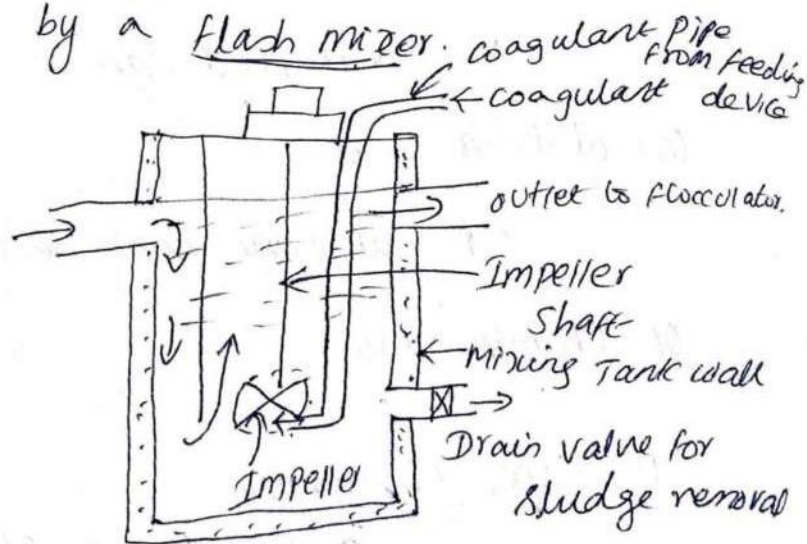 by a flash mixer.
coagulant pipe
from feeding
coagulant device
outlet to flocculator.
Impeller
Shaft
Mixing Tank wall
Drain valve for
sludge removal
Impeller